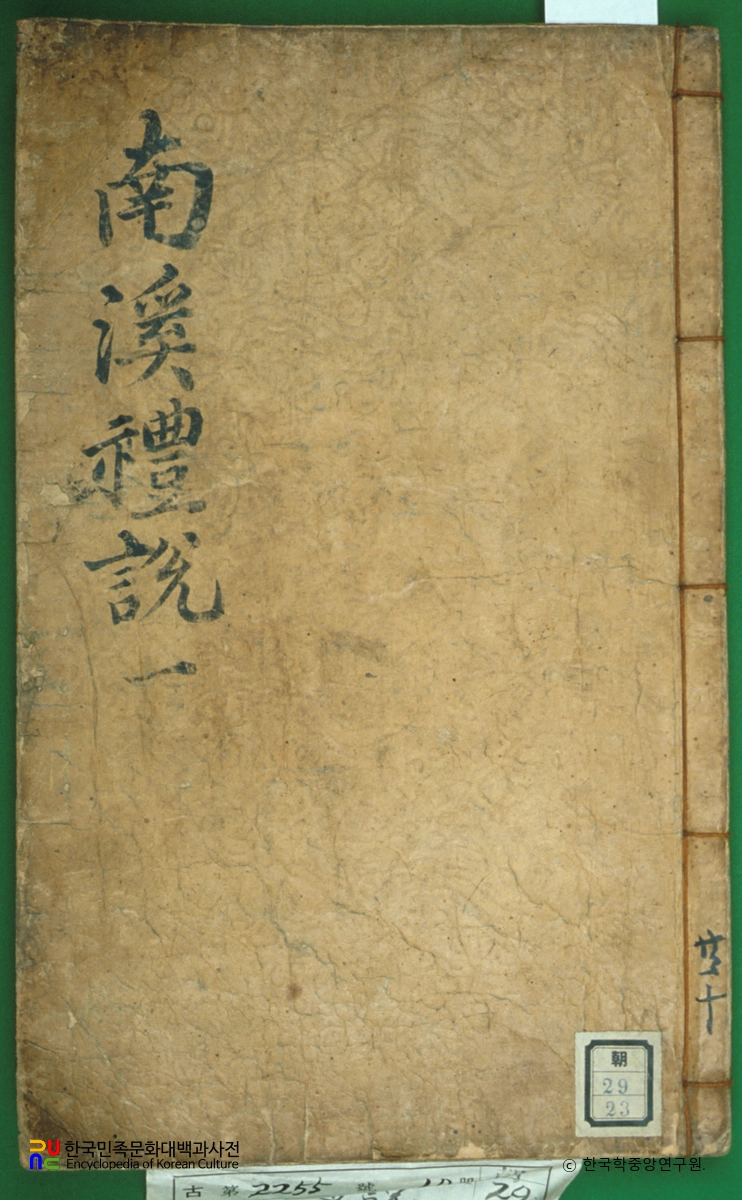 南溪禮說 一
共十
朝
29
23
한국민족문화대백과사전
Encyclopedia of Korean Culture
ⓒ 한국학중앙연구원.
古 第 2255 號
20